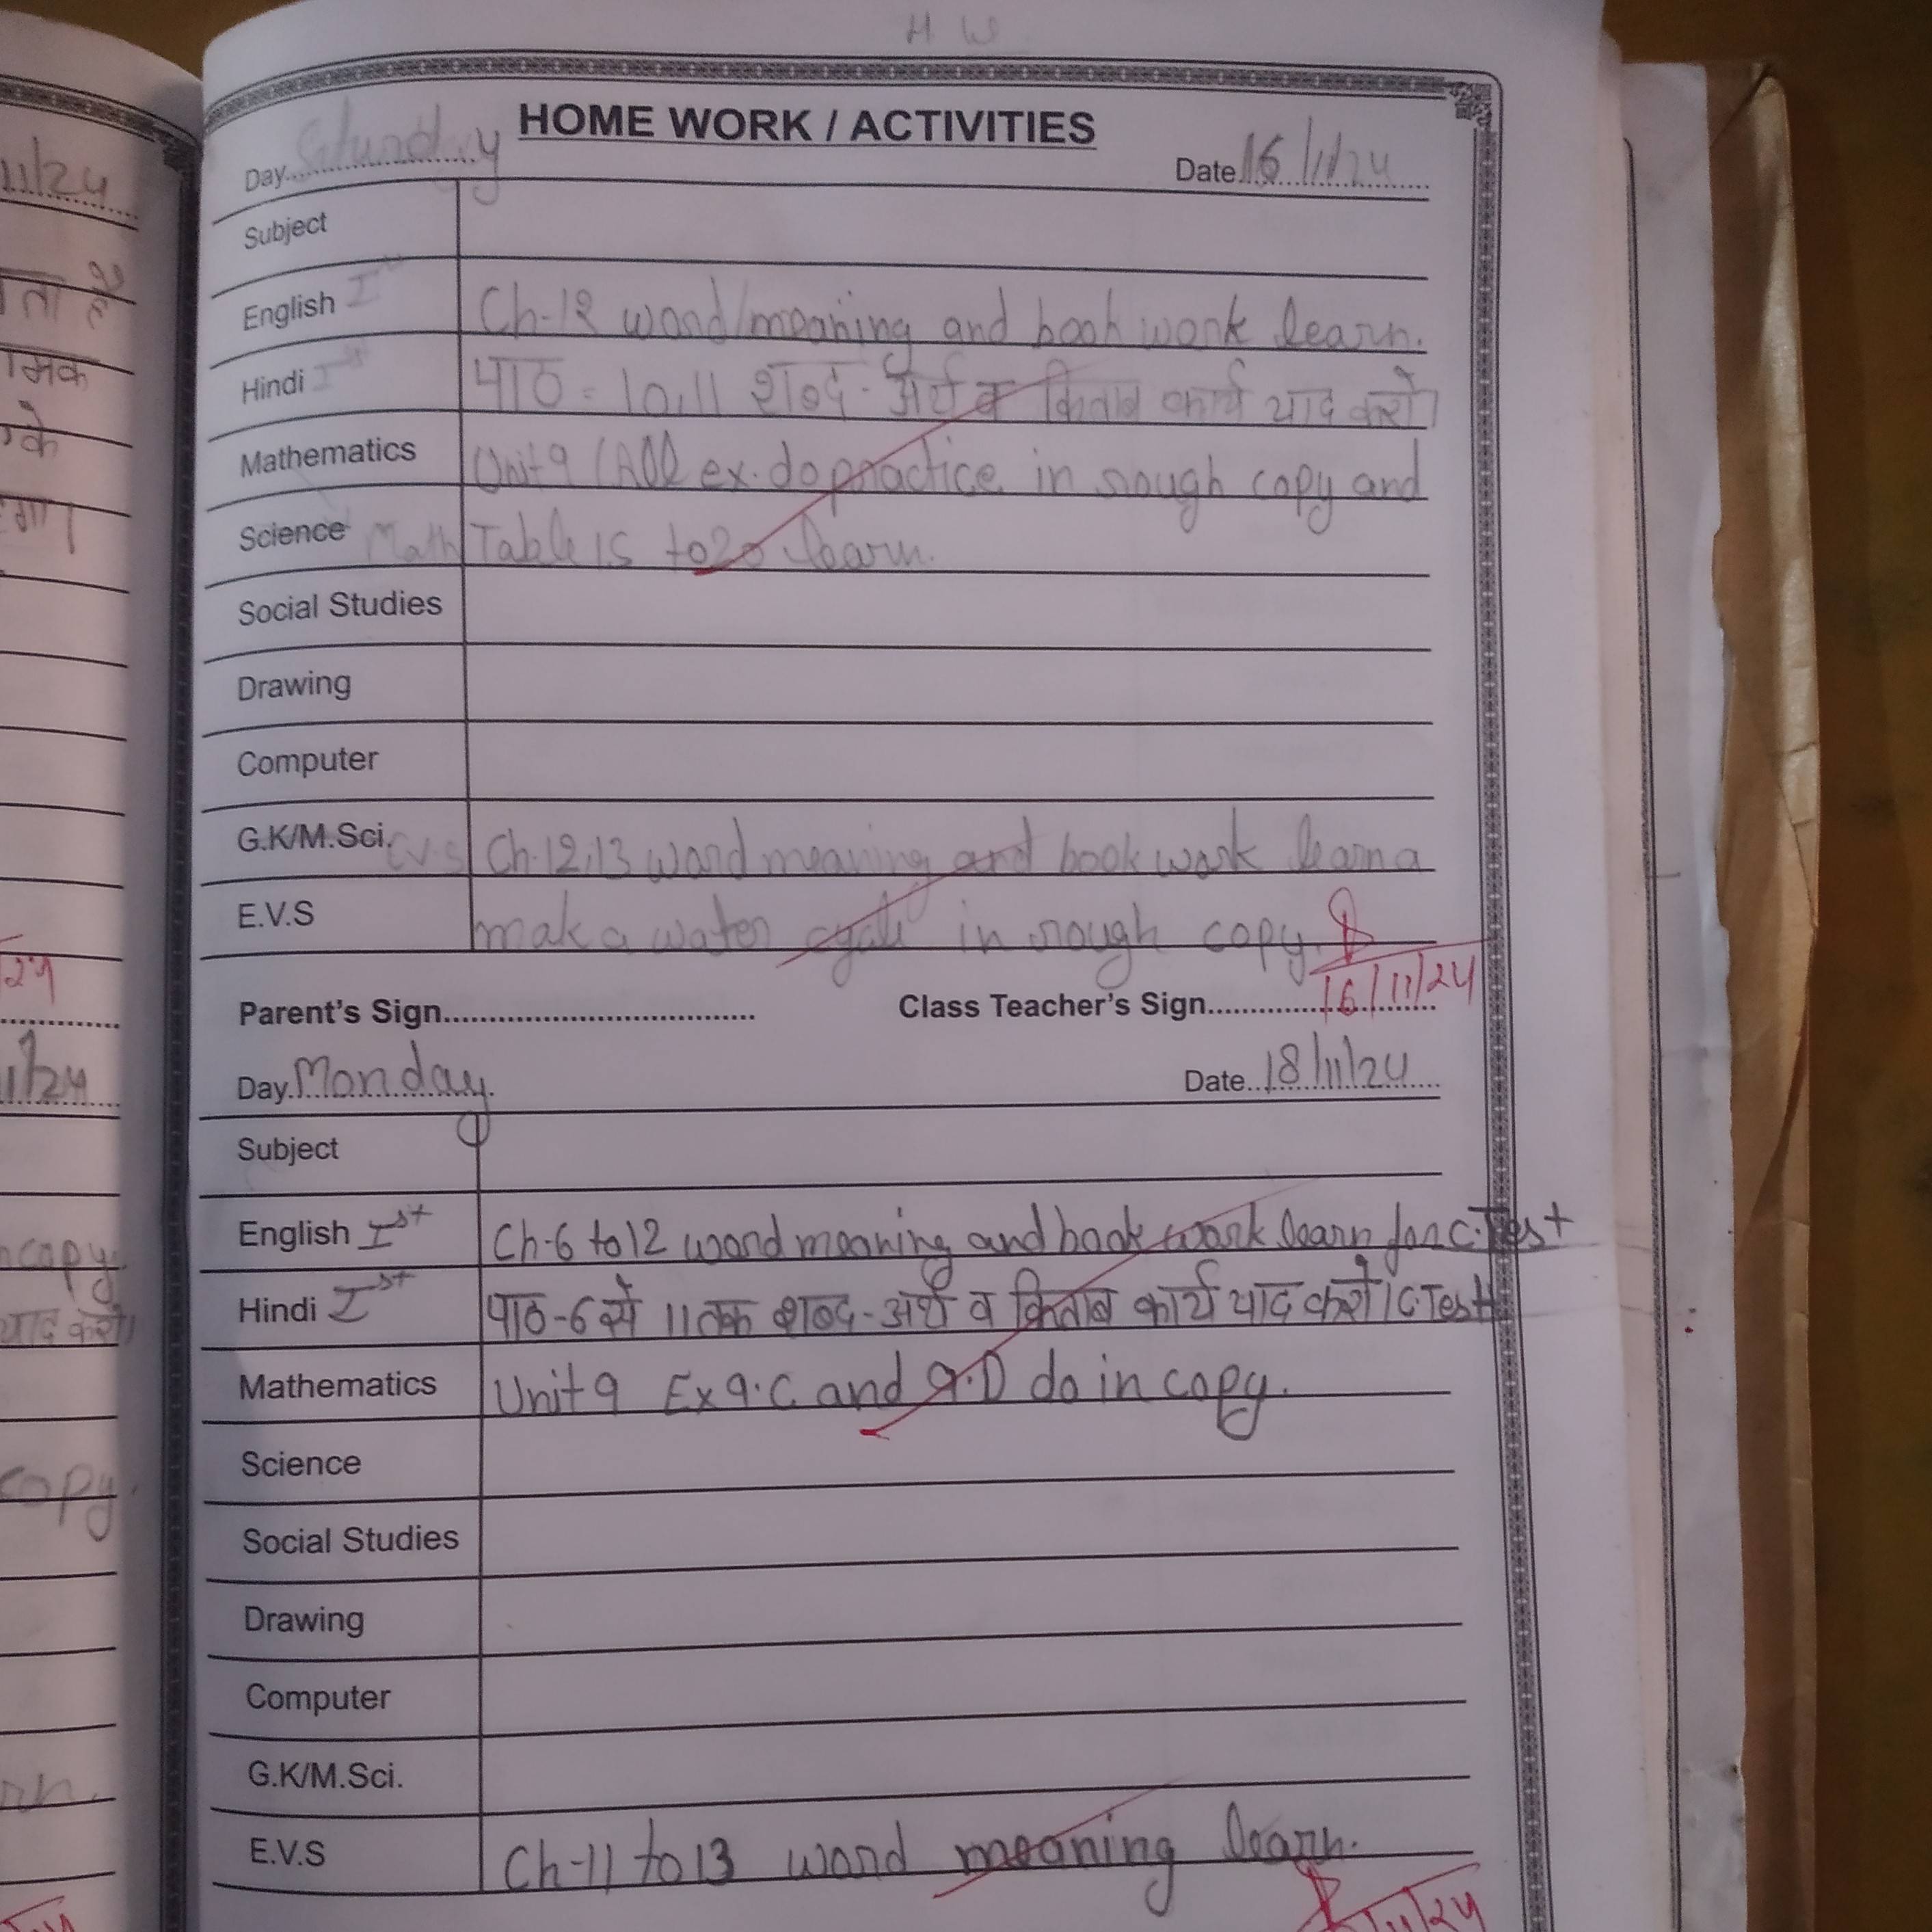 H W
HOME WORK / ACTIVITIES
Day Saturday Date 16/11/24
Subject
English I Ch-12 word/meaning and book work learn.
Hindi Ist पाठ - 10,11 शब्द-अर्थ व किताब कार्य याद करो।
Mathematics Unit 9 (All ex. do practice in rough copy and
Science Math Table 15 to 20 learn.
Social Studies
Drawing
Computer
G.K/M.Sci. E.V.S Ch.12,13 word meaning and book work learn a
E.V.S make a water cycle in rough copy.
Parent's Sign Class Teacher's Sign 16/11/24
Day Monday. Date 18/11/24
Subject
English Ist Ch-6 to 12 word meaning and book work learn for C.Test
Hindi Ist पाठ-6 से 11 तक शब्द-अर्थ व किताब कार्य याद करो। C.Test
Mathematics Unit 9 Ex 9.C and 9.D do in copy.
Science
Social Studies
Drawing
Computer
G.K/M.Sci.
E.V.S Ch-11 to 13 word meaning learn.
11/24
11/24
ता है
के
24
1/24
copy.
याद करो।
copy.